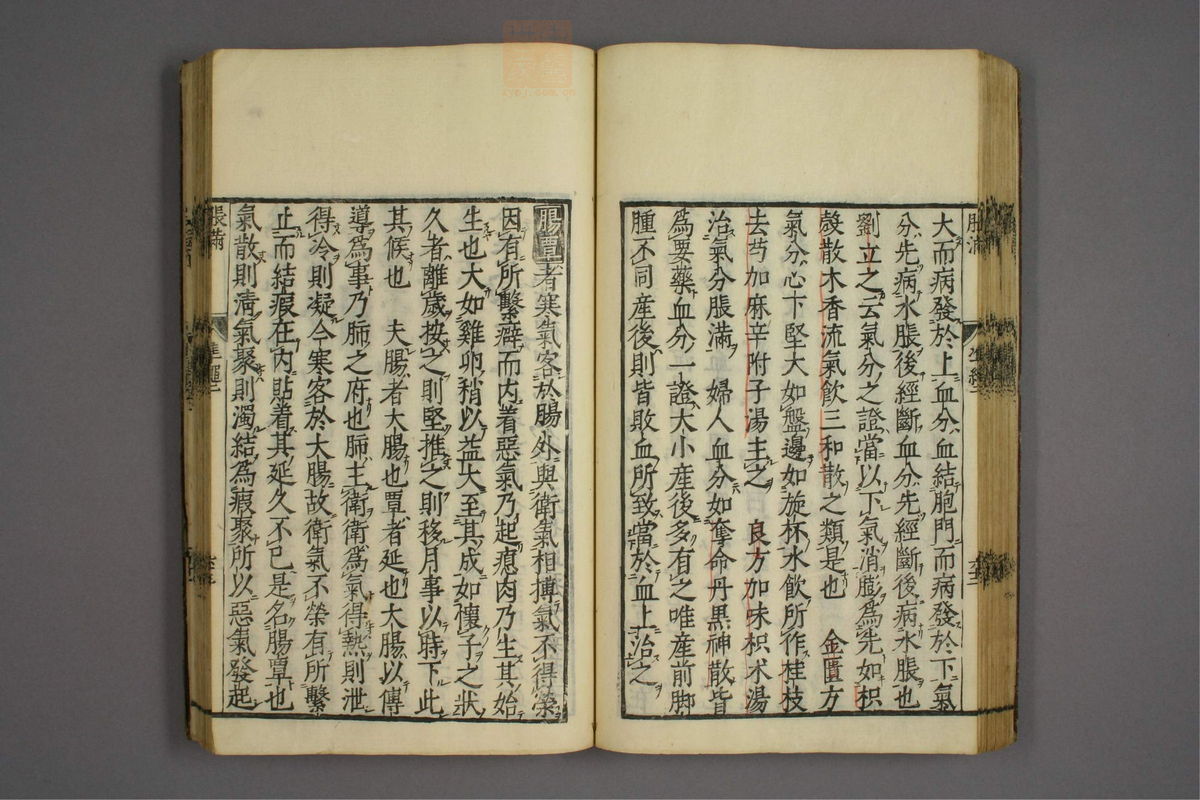 大而病發於上血分血結胞門而病發於下氣
分先病水脹後經斷血分先經斷後病水脹也
劉立之云氣分之證當以下氣消膨為先如枳
殼散木香流氣飲三和散之類是也 金匱方
氣分心下堅大如盤邊如旋杯水飲所作桂枝
去芍加麻辛附子湯主之 良方加味枳朮湯
治氣分脹滿 婦人血分如奪命丹黑神散皆
為要藥血分一證大小產後多有之唯產前脚
腫不同產後則皆敗血所致當於血上治之
腸覃者寒氣客於腸外與衛氣相搏氣不得榮
因有所繫癖而內着惡氣乃起瘜肉乃生其始
生也大如雞卵稍以益大至其成如懷子之狀
久者離歲按之則堅推之則移月事以時下此
其候也 夫腸者大腸也覃者延也大腸以傳
導為事乃肺之府也肺主衛衛為氣得熱則泄
得冷則凝今寒客於大腸故衛氣不榮有所繫
止而結瘕在內貼着其延久不已是名腸覃也
氣散則清氣聚則濁結為瘕聚所以惡氣發起
脹滿